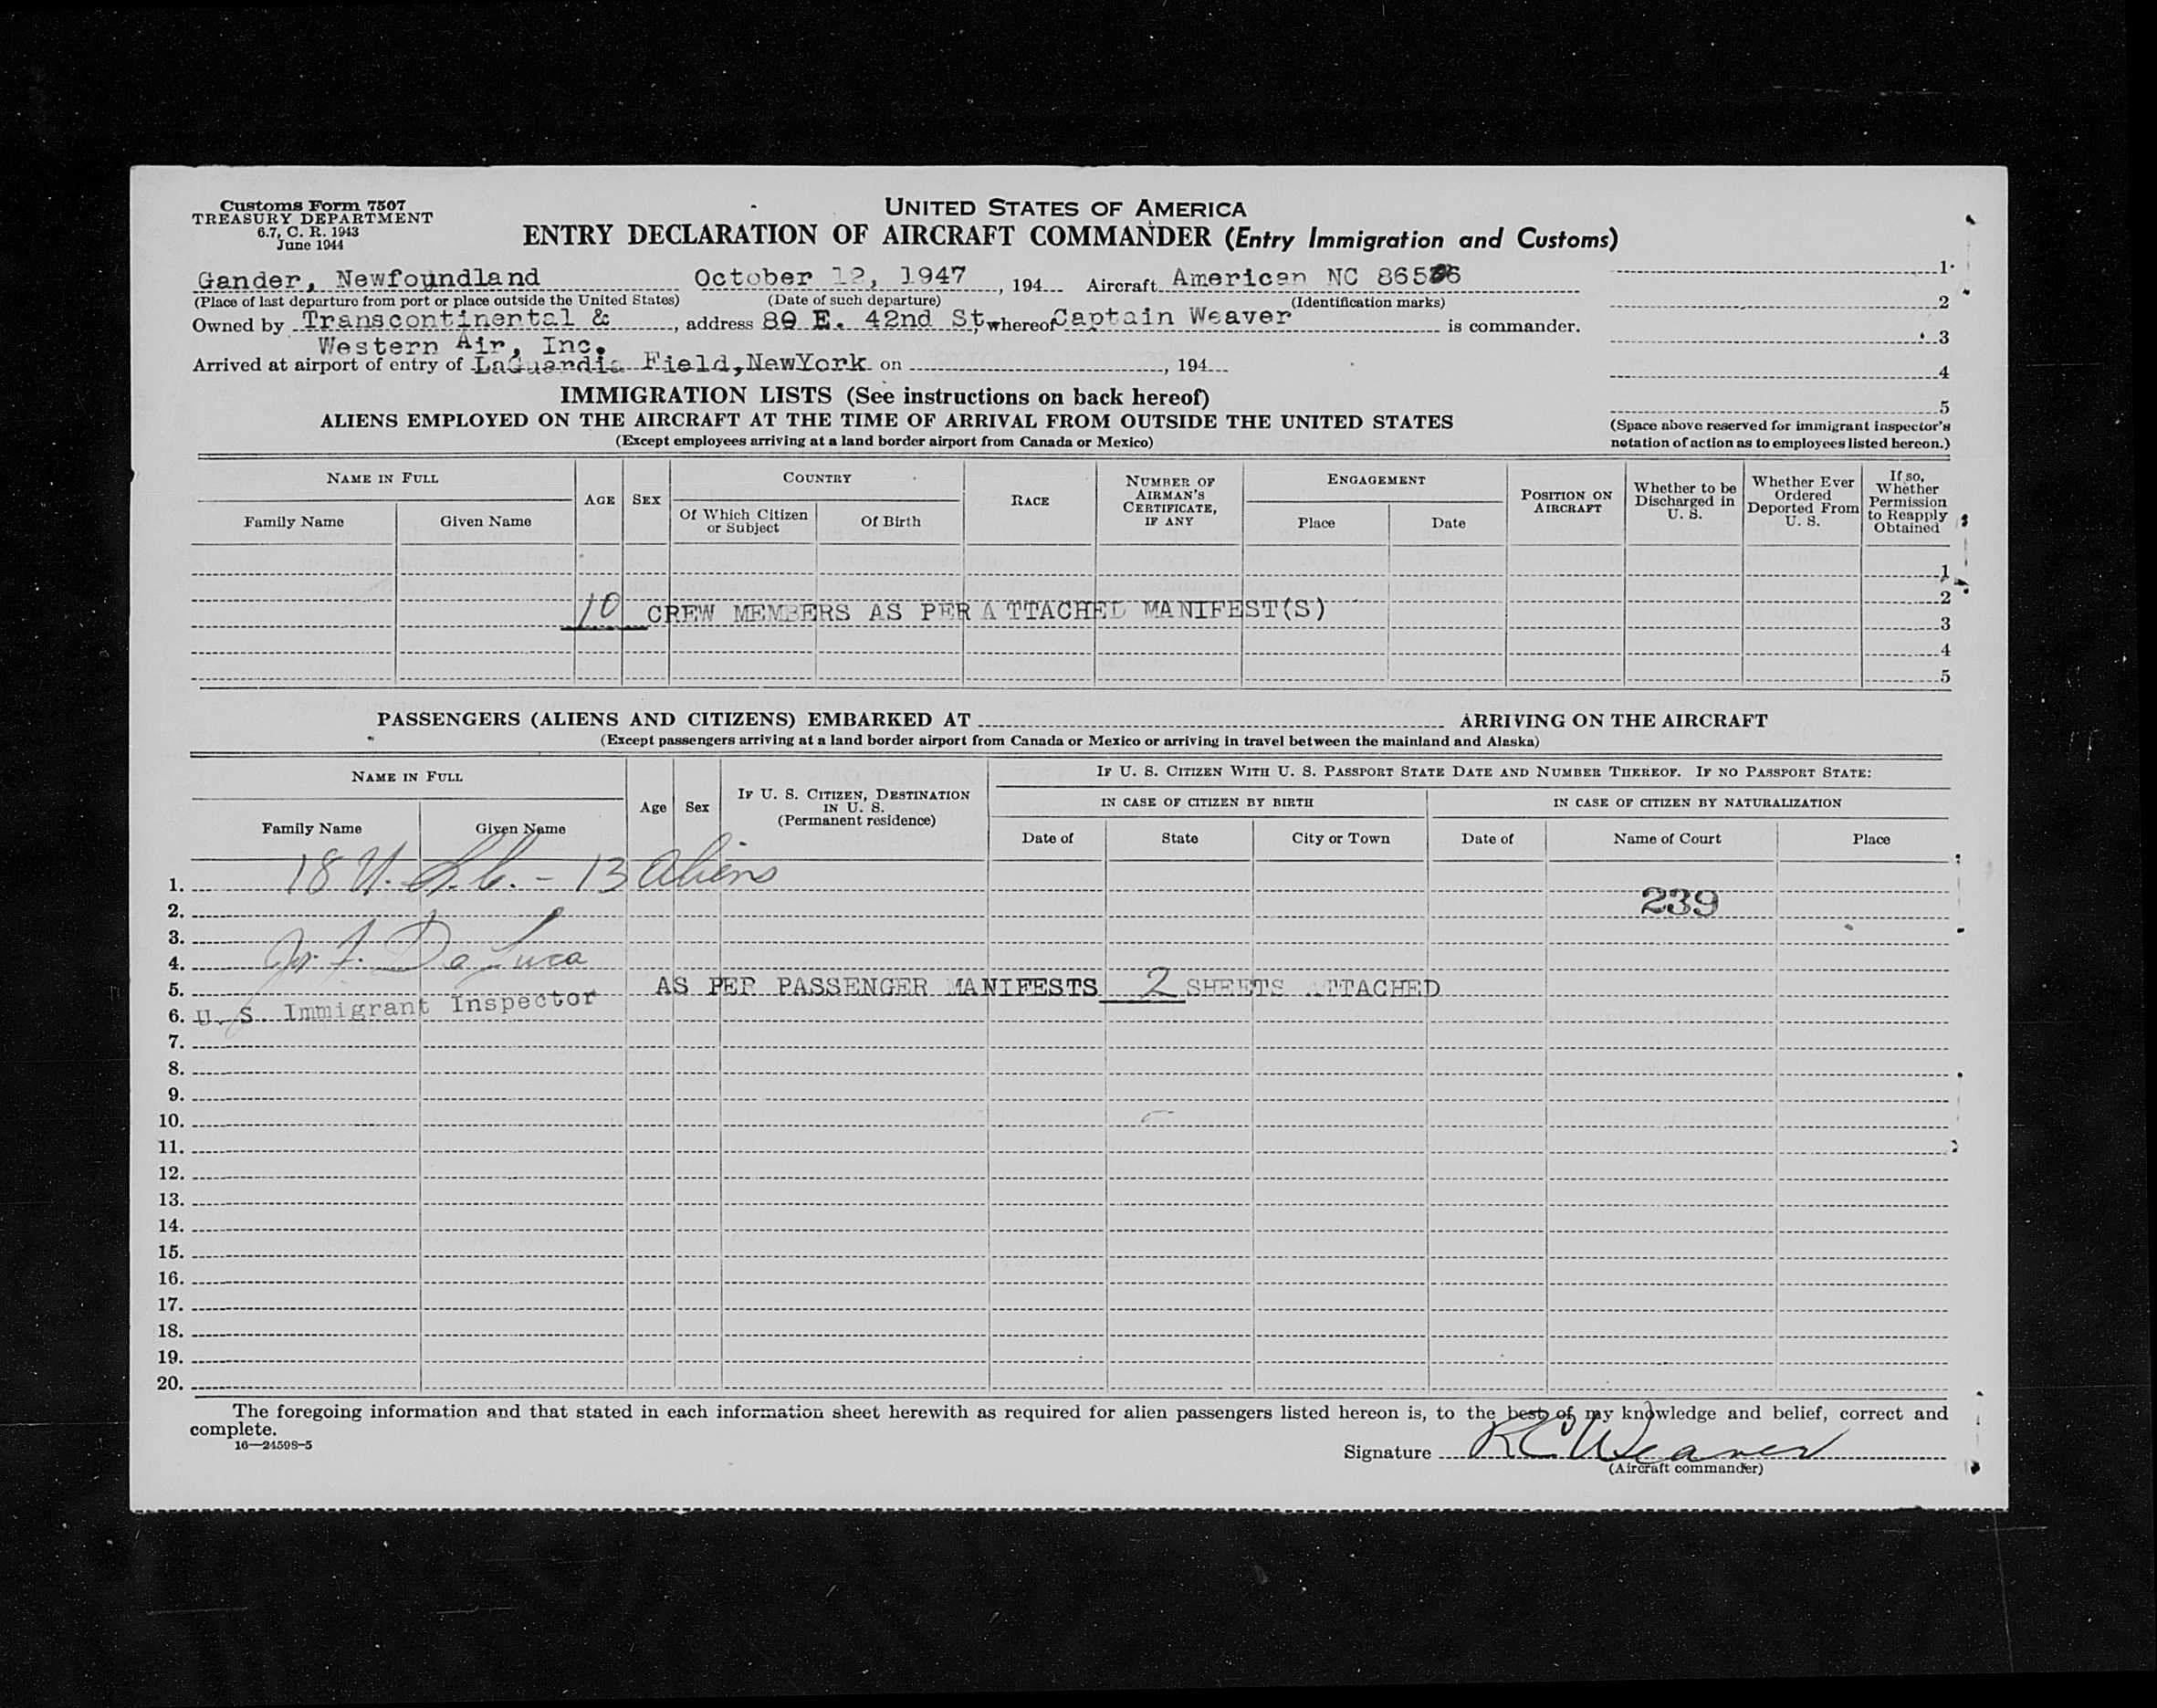 Customs Form 7507
TREASURY DEPARTMENT
6.7, C. R. 1943
June 1944
UNITED STATES OF AMERICA
ENTRY DECLARATION OF AIRCRAFT COMMANDER (Entry Immigration and Customs)
Gander, Newfoundland October 12, 1947, 194 Aircraft American NC
(Place of last departure from port or place outside the United States) (Date of such departure) (Identification marks)
Owned by Transcontinental & , address 80 E. 42nd St, whereof Captain Weaver is commander.
Western Air, Inc.
Arrived at airport of entry of LaGuardia Field, NewYork on , 194
1
2
3
4
5
(Space above reserved for immigrant inspector's
notation of action as to employees listed hereon.)
IMMIGRATION LISTS (See instructions on back hereof)
ALIENS EMPLOYED ON THE AIRCRAFT AT THE TIME OF ARRIVAL FROM OUTSIDE THE UNITED STATES
(Except employees arriving at a land border airport from Canada or Mexico)
NAME IN FULL
Family Name
Given Name
AGE
SEX
COUNTRY
Of Which Citizen or Subject
Of Birth
RACE
NUMBER OF AIRMAN'S CERTIFICATE, IF ANY
ENGAGEMENT
Place
Date
POSITION ON AIRCRAFT
Whether to be Discharged in U. S.
Whether Ever Ordered Deported From U. S.
If so, Whether Permission to Reapply Obtained
1
2
10 CREW MEMBERS AS PER ATTACHED MANIFEST(S)
3
4
5
PASSENGERS (ALIENS AND CITIZENS) EMBARKED AT ARRIVING ON THE AIRCRAFT
(Except passengers arriving at a land border airport from Canada or Mexico or arriving in travel between the mainland and Alaska)
NAME IN FULL
Family Name
Given Name
Age
Sex
IF U. S. CITIZEN, DESTINATION IN U. S.
(Permanent residence)
IF U. S. CITIZEN WITH U. S. PASSPORT STATE DATE AND NUMBER THEREOF. IF NO PASSPORT STATE:
IN CASE OF CITIZEN BY BIRTH
Date of
State
City or Town
IN CASE OF CITIZEN BY NATURALIZATION
Date of
Name of Court
Place
1. 18 U. S. C. - 13 Aliens
2. 239
3.
4. De Luca
5. AS PER PASSENGER MANIFESTS 2 SHEETS ATTACHED
6. U. S. Immigrant Inspector
7.
8.
9.
10.
11.
12.
13.
14.
15.
16.
17.
18.
19.
20.
The foregoing information and that stated in each information sheet herewith as required for alien passengers listed hereon is, to the best of my knowledge and belief, correct and
complete.
16—24598-5
Signature R C Weaver
(Aircraft commander)